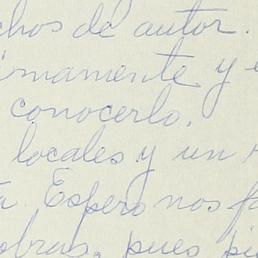 chos de autor.
irmamente y e
conocerlo.
locales y un
a. Espero nos fa
obras, pues pi